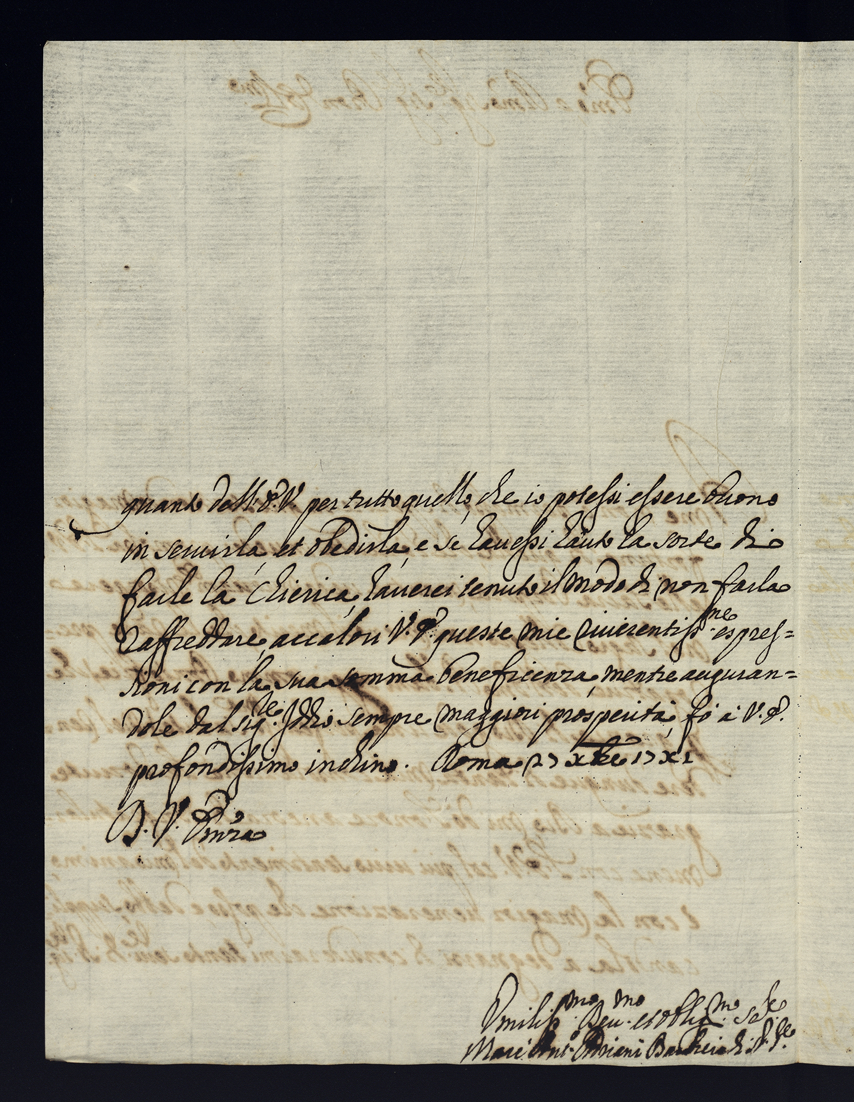 quanto dell'E. V. per tutto quello che io potessi essere buono
in servirla, et obedirla, e se havessi hauto la sorte di
farle la Chierica, haverei tenuto il modo di non farla
raffreddare, accalori V. E. queste mie riverentiss.me espres=
sioni con la sua somma beneficenza mentre auguran=
dole dal sig.re Iddio sempre maggiori prosperità, fò à V. E.
profondissimo inchino. Roma 27 Xbre 17X1
D. V. Em.za
Umiliss.mo Dev.mo et oblig.mo Se.re
Marc'Ant.o Barbiere di N. S.re